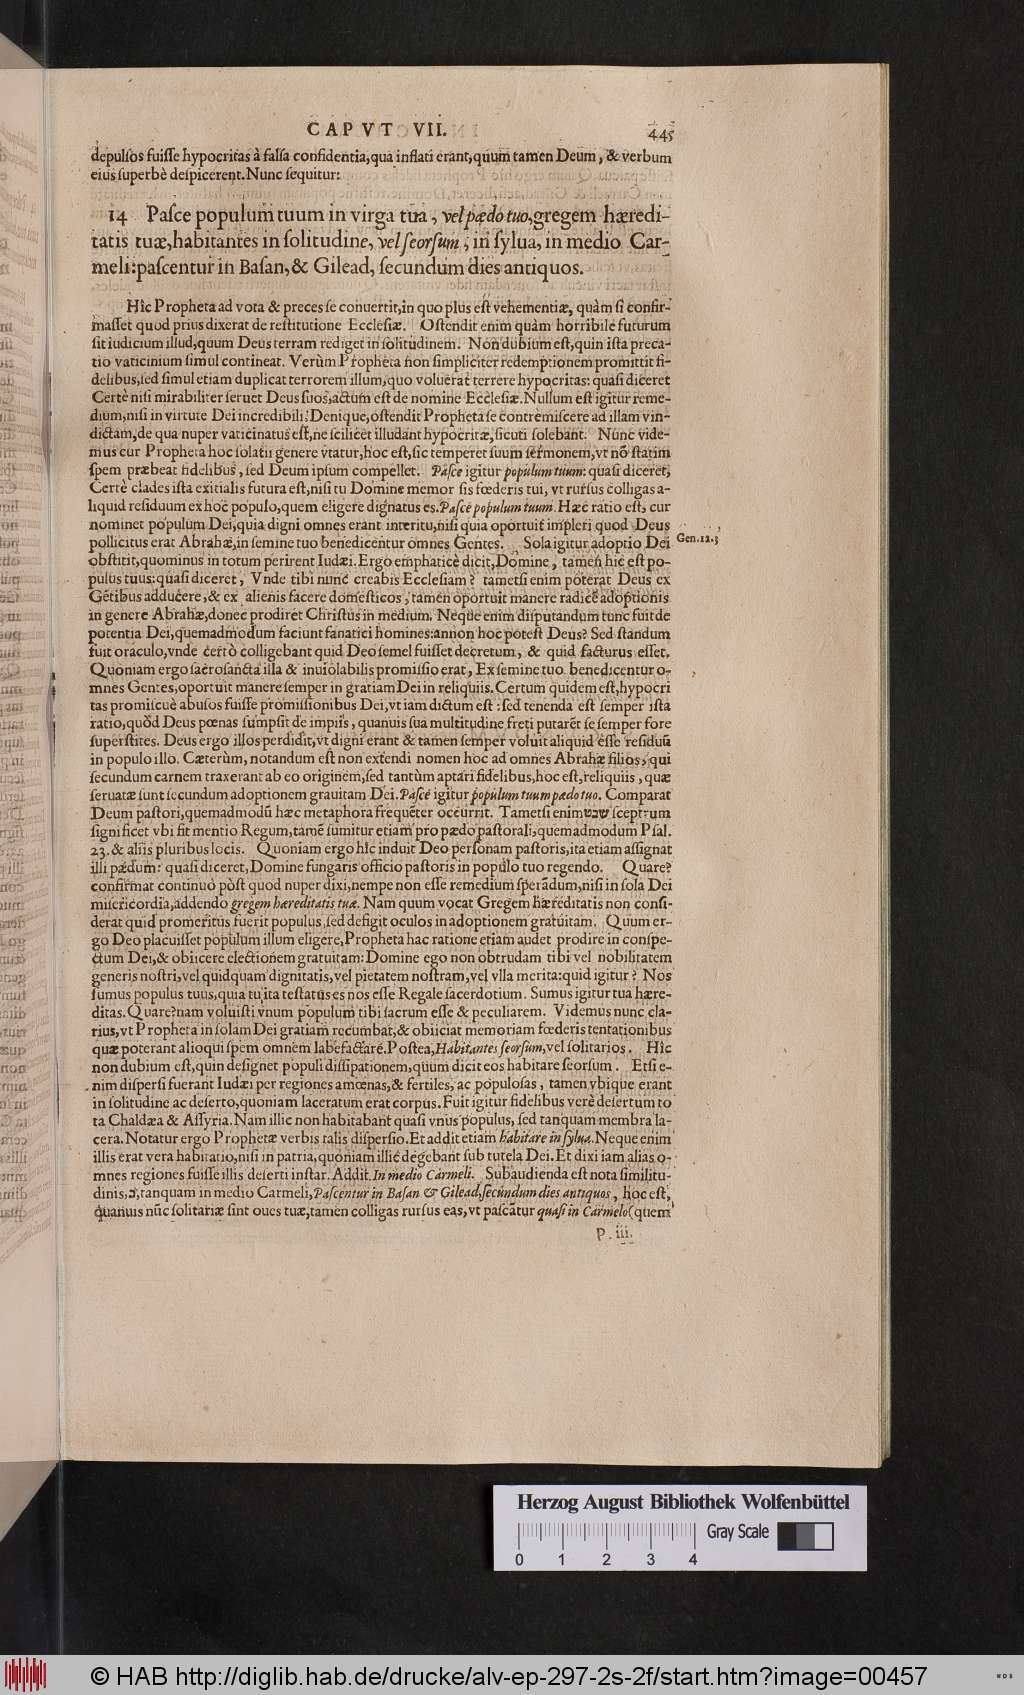 CAPVT VII. 445
depulſos fuiſſe hypocritas à falſa confidentia, qua inflati erant, quum tamen Deum, & verbum
eius ſuperbè deſpicerent. Nunc ſequitur:
14 Paſce populum tuum in virga tua, vel pædo tuo, gregem hæredi-
tatis tuæ, habitantes in ſolitudine, vel ſeorſum, in ſylua, in medio Car-
meli: paſcentur in Baſan, & Gilead, ſecundum dies antiquos.
Hîc Propheta ad vota & preces ſe conuertit, in quo plus eſt vehementiæ, quàm ſi confir-
maſſet quod prius dixerat de reſtitutione Eccleſiæ. Oſtendit enim quàm horribile futurum
ſit iudicium illud, quum Deus terram rediget in ſolitudinem. Non dubium eſt, quin iſta preca-
tio vaticinium ſimul contineat. Verùm Propheta non ſimpliciter redemptionem promittit fi-
delibus, ſed ſimul etiam duplicat terrorem illum, quo voluerat terrere hypocritas: quaſi diceret
Certè niſi mirabiliter ſeruet Deus ſuos, actum eſt de nomine Eccleſiæ. Nullum eſt igitur reme-
dium, niſi in virtute Dei incredibili. Denique, oſtendit Propheta ſe contremiſcere ad illam vin-
dictam, de qua nuper vaticinatus eſt, ne ſcilicet illudant hypocritæ, ſicuti ſolebant. Nunc vide-
mus cur Propheta hoc ſolatii genere vtatur, hoc eſt, ſic temperet ſuum ſermonem, vt nõ ſtatim
ſpem præbeat fidelibus, ſed Deum ipſum compellet. Paſce igitur populum tuum: quaſi diceret,
Certè clades iſta exitialis futura eſt, niſi tu Domine memor ſis fœderis tui, vt rurſus colligas a-
liquid reſiduum ex hoc populo, quem eligere dignatus es. Paſce populum tuum. Hæc ratio eſt, cur
nominet populum Dei, quia digni omnes erant interitu, niſi quia oportuit impleri quod Deus
pollicitus erat Abrahæ, in ſemine tuo benedicentur omnes Gentes. Sola igitur adoptio Dei
Gen. 12.3
obſtitit, quominus in totum perirent Iudæi. Ergo emphaticè dicit, Domine, tamen hic eſt po-
pulus tuus: quaſi diceret, Vnde tibi nunc creabis Eccleſiam? tametſi enim poterat Deus ex
Gẽtibus adducere, & ex alienis facere domeſticos, tamen oportuit manere radicẽ adoptionis
in genere Abrahæ, donec prodiret Chriſtus in medium. Neque enim diſputandum tunc fuit de
potentia Dei, quemadmodum faciunt fanatici homines: annon hoc poteſt Deus? Sed ſtandum
fuit oraculo, vnde certò colligebant quid Deo ſemel fuiſſet decretum, & quid facturus eſſet.
Quoniam ergo ſacroſancta illa & inuiolabilis promiſſio erat, Ex ſemine tuo benedicentur o-
mnes Gentes, oportuit manere ſemper in gratiam Dei in reliquiis. Certum quidem eſt, hypocri
tas promiſcuè abuſos fuiſſe promiſſionibus Dei, vt iam dictum eſt: ſed tenenda eſt ſemper iſta
ratio, quòd Deus pœnas ſumpſit de impiis, quanuis ſua multitudine freti putarẽt ſe ſemper fore
ſuperſtites. Deus ergo illos perdidit, vt digni erant & tamen ſemper voluit aliquid eſſe reſiduũ
in populo illo. Cæterùm, notandum eſt non extendi nomen hoc ad omnes Abrahæ filios, qui
ſecundum carnem traxerant ab eo originem, ſed tantùm aptari fidelibus, hoc eſt, reliquiis, quæ
ſeruatæ ſunt ſecundum adoptionem grauitam Dei. Paſce igitur populum tuum pædo tuo. Comparat
Deum paſtori, quemadmodũ hæc metaphora frequẽter occurrit. Tametſi enim שבט ſceptrum
ſignificet vbi fit mentio Regum, tamẽ ſumitur etiam pro pædo paſtorali, quemadmodum Pſal.
23. & aliis pluribus locis. Quoniam ergo hîc induit Deo perſonam paſtoris, ita etiam aſſignat
illi pædum: quaſi diceret, Domine fungaris officio paſtoris in populo tuo regendo. Quare?
confirmat continuò pòſt quod nuper dixi, nempe non eſſe remedium ſperãdum, niſi in ſola Dei
miſericordia, addendo gregem hæreditatis tuæ. Nam quum vocat Gregem hæreditatis non conſi-
derat quid promeritus fuerit populus, ſed defigit oculos in adoptionem gratuitam. Quum er-
go Deo placuiſſet populum illum eligere, Propheta hac ratione etiam audet prodire in conſpe-
ctum Dei, & obiicere electionem gratuitam: Domine ego non obtrudam tibi vel nobilitatem
generis noſtri, vel quidquam dignitatis, vel pietatem noſtram, vel vlla merita: quid igitur? Nos
ſumus populus tuus, quia tu ita teſtatus es nos eſſe Regale ſacerdotium. Sumus igitur tua hære-
ditas. Quare? nam voluiſti vnum populum tibi ſacrum eſſe & peculiarem. Videmus nunc cla-
rius, vt Propheta in ſolam Dei gratiam recumbat, & obiiciat memoriam fœderis tentationibus
quæ poterant alioqui ſpem omnem labefactare. Poſtea, Habitantes ſeorſum, vel ſolitarios. Hîc
non dubium eſt, quin deſignet populi diſſipationem, quum dicit eos habitare ſeorſum. Etſi e-
nim diſperſi fuerant Iudæi per regiones amœnas, & fertiles, ac populoſas, tamen vbique erant
in ſolitudine ac deſerto, quoniam laceratum erat corpus. Fuit igitur fidelibus verè deſertum to
ta Chaldæa & Aſſyria. Nam illic non habitabant quaſi vnus populus, ſed tanquam membra la-
cera. Notatur ergo Prophetæ verbis talis diſperſio. Et addit etiam habitare in ſylua. Neque enim
illis erat vera habitatio, niſi in patria, quoniam illîc degebant ſub tutela Dei. Et dixi iam alias o-
mnes regiones fuiſſe illis deſerti inſtar. Addit. In medio Carmeli. Subaudienda eſt nota ſimilitu-
dinis, כ, tanquam in medio Carmeli, Paſcentur in Baſan & Gilead, ſecundum dies antiquos, hoc eſt,
quanuis nũc ſolitariæ ſint oues tuæ, tamen colligas rurſus eas, vt paſcãtur quaſi in Carmelo (quem
P. iii.
Herzog August Bibliothek Wolfenbüttel
Gray Scale
0 1 2 3 4
© HAB http://diglib.hab.de/drucke/alv-ep-297-2s-2f/start.htm?image=00457